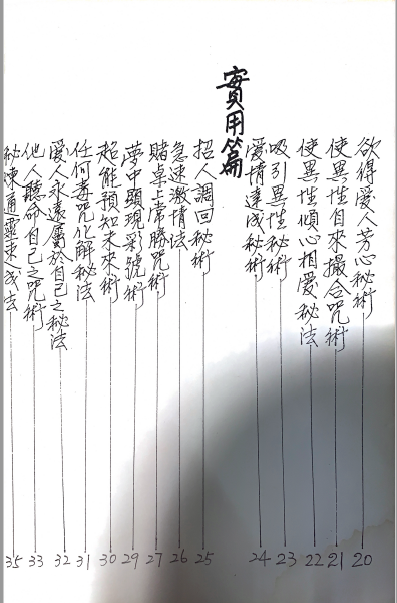 實用篇
欲得愛人芳心秘術 20
使異性自來撮合咒術 21
使異性傾心相愛秘法 22
吸引異性秘術 23
愛情達成秘術 24
招人調回秘術 25
急速激情法 26
賭桌上常勝咒術 27
夢中顯現彩號術 29
超能預知未來術 30
任何毒咒化解秘法 31
愛人永遠屬於自己之秘法 32
他人聽命自己之咒術 33
秘煉通靈速成法 35